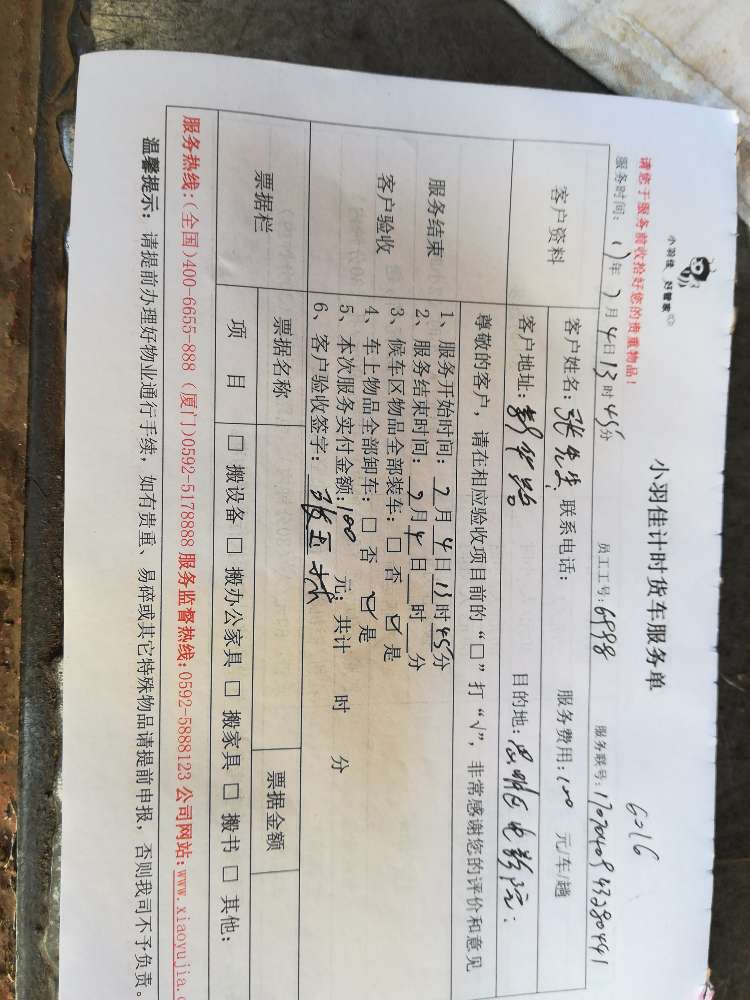 小羽佳 好管家
小羽佳计时货车服务单
6016
请您于服务前收拾好您的贵重物品！
服务时间：17年7月4日13时45分 员工工号：6998 服务联号：17070409432280441
客户资料
客户姓名：张先生 联系电话： 服务费用：100 元/车/趟
客户地址：新华路 目的地：思明区电影院：
服务结束
客户验收
尊敬的客户，请在相应验收项目前的“□”打“√”，非常感谢您的评价和意见
1、服务开始时间：7月4日13时45分
2、服务结束时间：7月4日 时 分
3、候车区物品全部装车：□ 否 ☑ 是
4、车上物品全部卸车：□ 否 ☑ 是
5、本次服务实付金额：100 元；共计 时 分
6、客户验收签字：
票据栏
票据名称 票据金额
项 目 □ 搬设备 □ 搬办公家具 □ 搬家具 □ 搬书 □ 其他：
服务热线：(全国)400-6655-888 (厦门)0592-5178888 服务监督热线：0592-5888123 公司网站：www.xiaoyujia.c
温馨提示：请提前办理好物业通行手续，如有贵重、易碎或其它特殊物品请提前申报，否则我司不予负责。